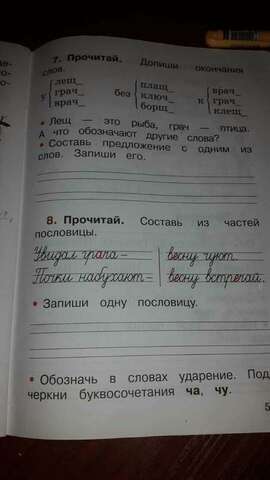 7. Прочитай. Допиши окончания
слов.
у лещ_ грач_ врач_ без плащ_ ключ_ борщ_ к врач_ грач_ клещ_
• Лещ — это рыба, грач — птица.
А что обозначают другие слова?
• Составь предложение с одним из
слов. Запиши его.
8. Прочитай. Составь из частей
пословицы.
Увидал грача — весну чуют.
Почки набухают — весну встречай.
• Запиши одну пословицу.
• Обозначь в словах ударение. Под
черкни буквосочетания ча, чу.
5